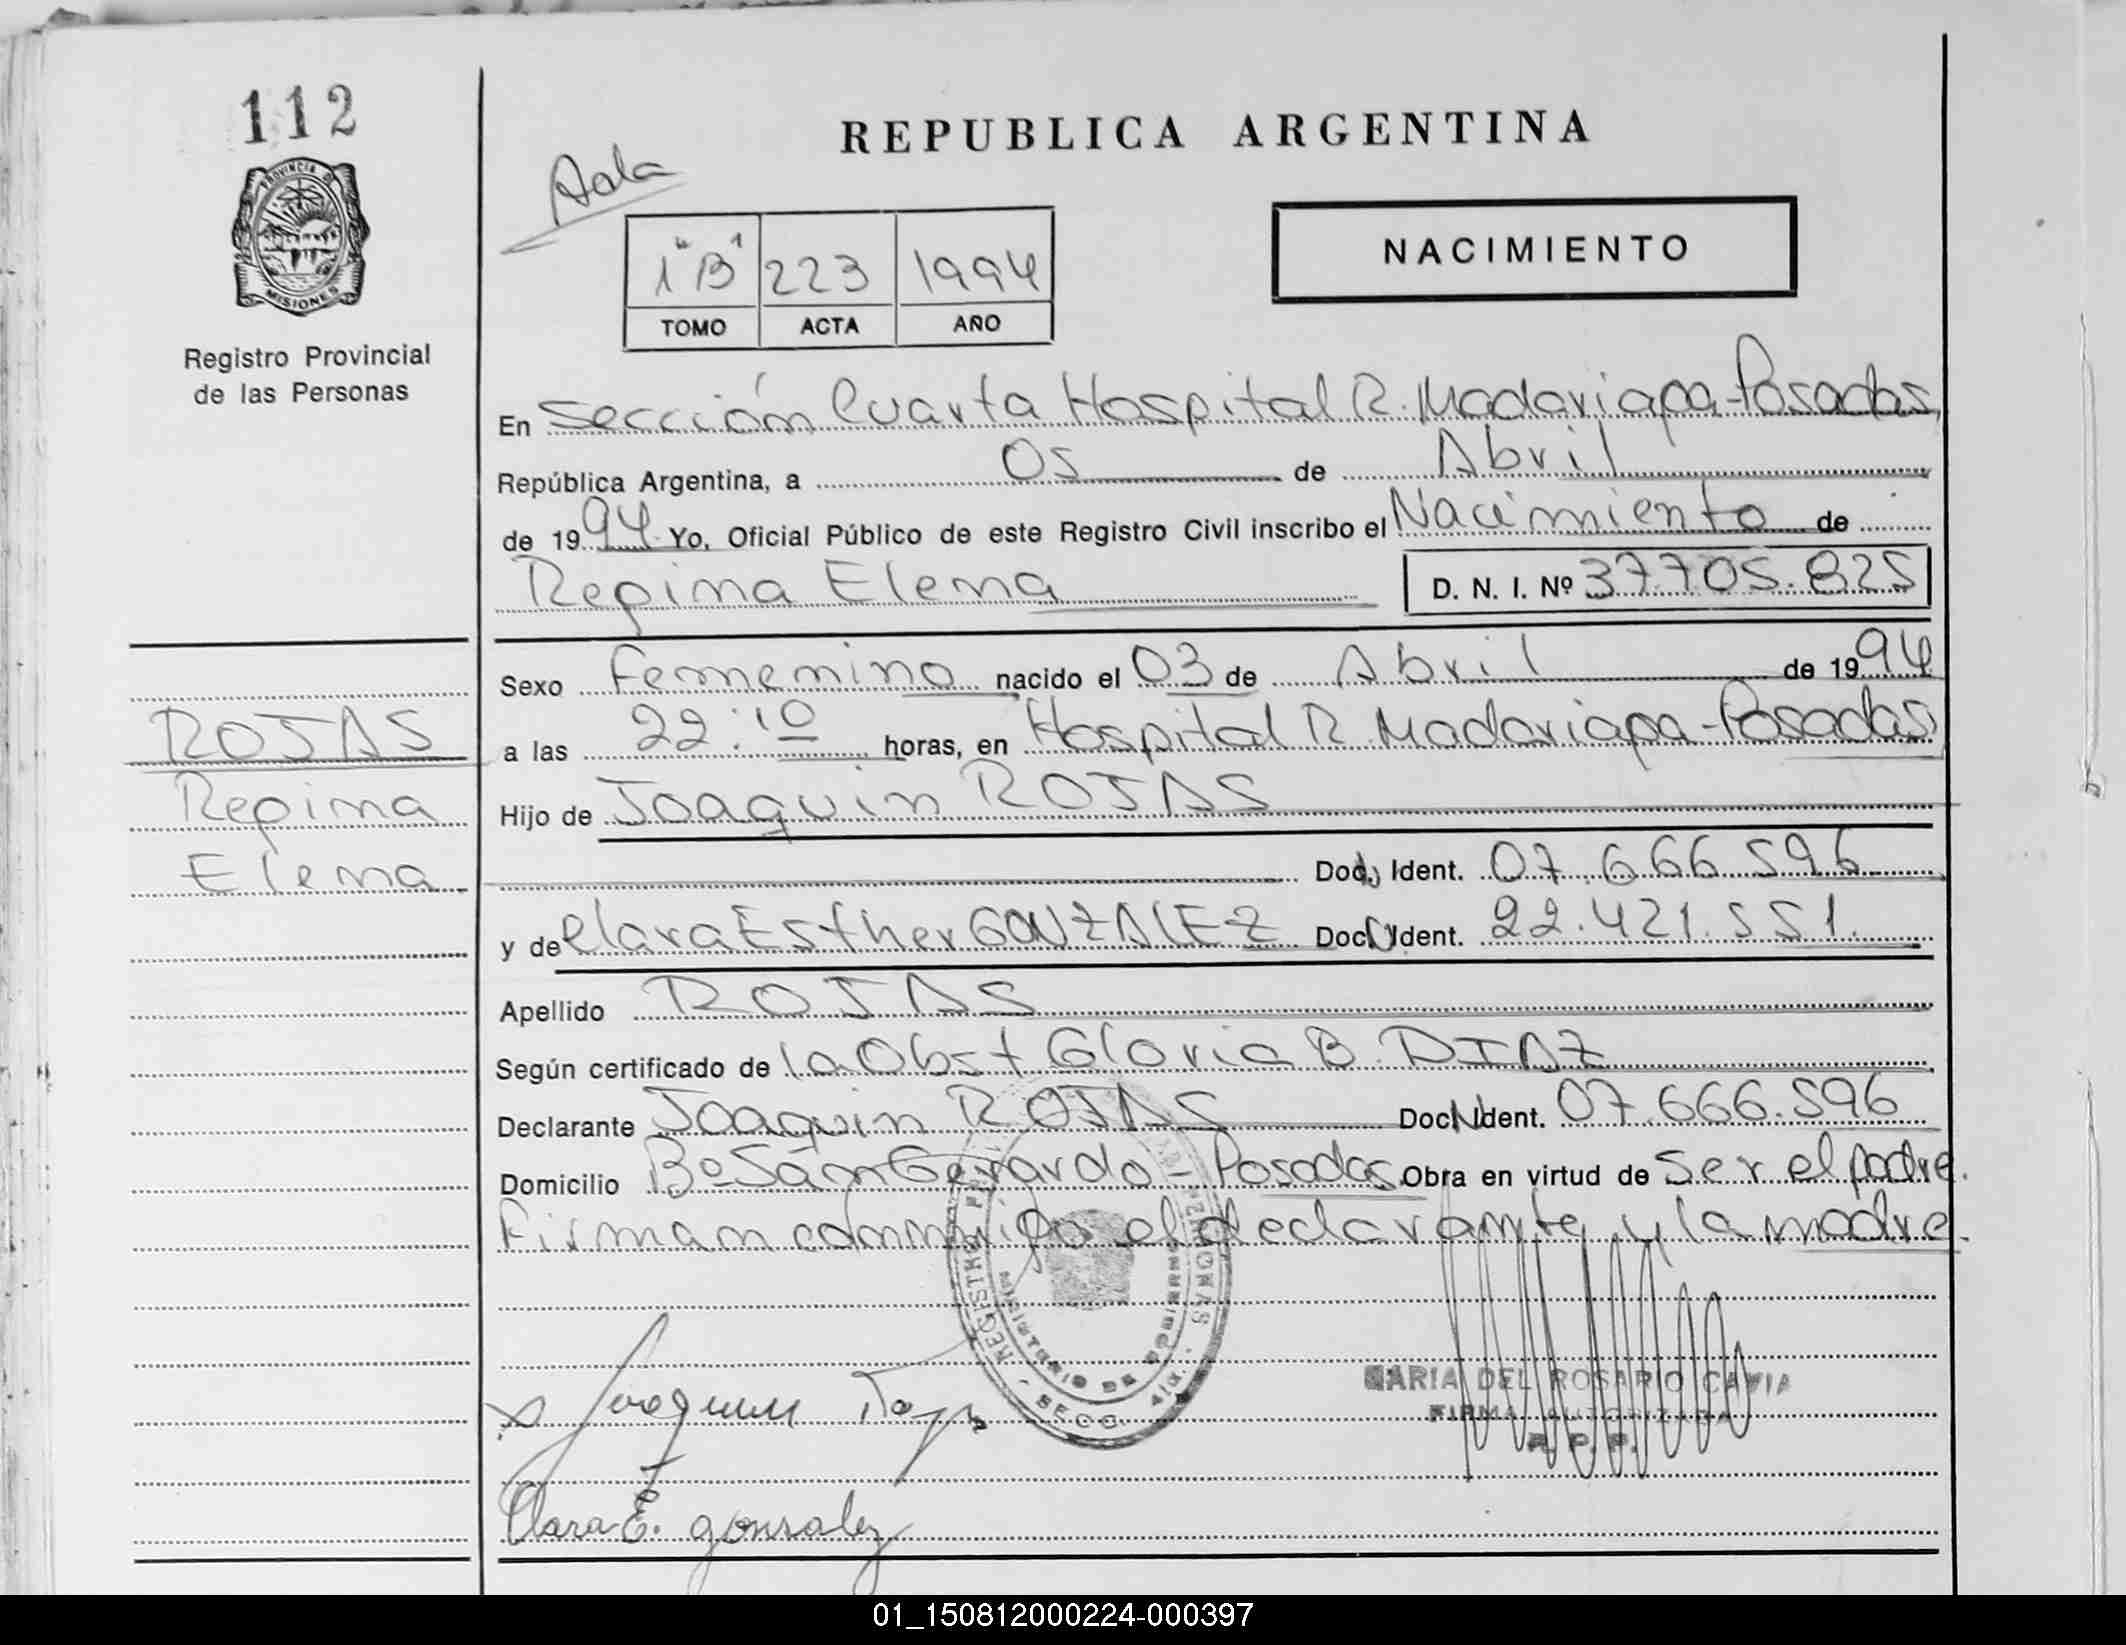 112
PROVINCIA DE
MISIONES
Registro Provincial
de las Personas
REPUBLICA ARGENTINA
1 "B" 223 1994
TOMO ACTA AÑO
NACIMIENTO
En Sección Cuarta Hospital R. Madariaga-Posadas,
República Argentina, a 05 de Abril
de 1994 Yo, Oficial Público de este Registro Civil inscribo el Nacimiento de
Regina Elena D. N. I. Nº 37.705.825
Sexo Femenino nacido el 03 de Abril de 1994
a las 22:10 horas, en Hospital R. Madariaga-Posadas,
Hijo de Joaquin ROJAS
Doc. Ident. 07.666.596
y de Clara Esther GONZALEZ Doc N Ident. 22.421.551.
Apellido ROJAS
Según certificado de la Obst Gloria B. DIAZ
Declarante Joaquin ROJAS Doc N Ident. 07.666.596
Domicilio Bº San Gerardo - Posadas Obra en virtud de Ser el padre.
Firman conmigo el declarante y la madre.
ROJAS
Regina
Elena
Joaquin Rojas
Clara E. gonzalez
REGISTRO
MINISTERIO DE
SECC. 4ta.
MARIA DEL ROSARIO CAVIA
FIRMA AUTORIZADA
R. P. P.
01_150812000224-000397